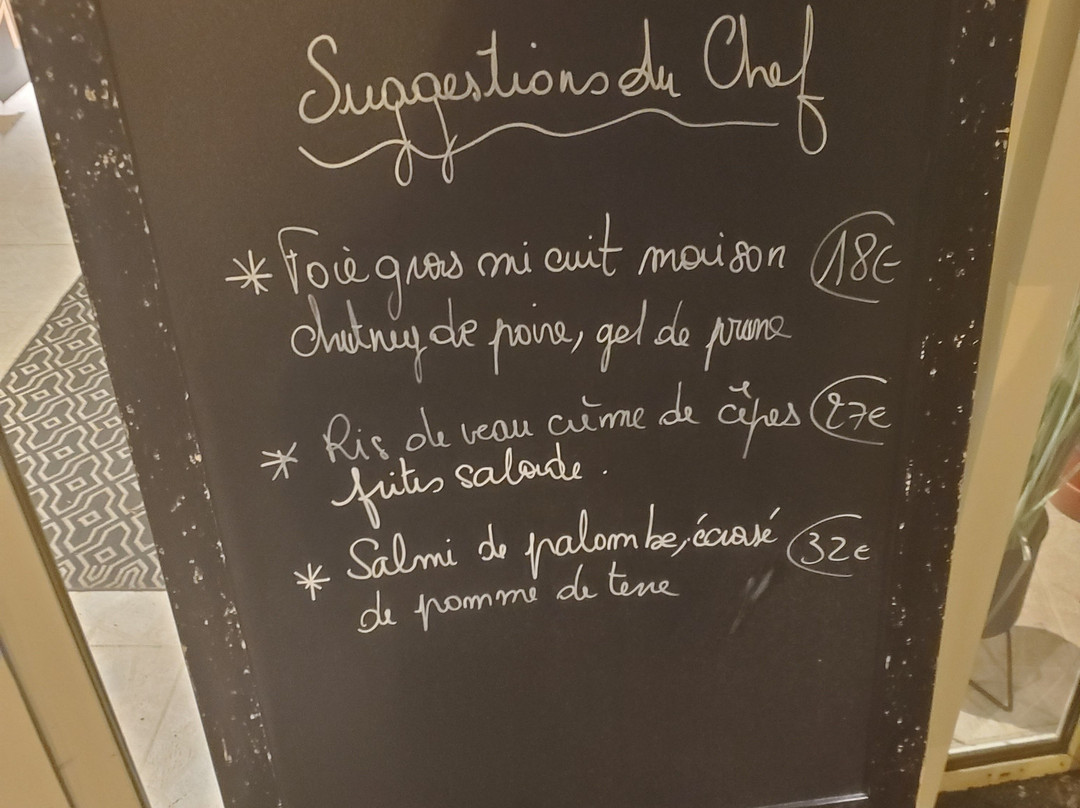 Suggestions du Chef
* Foie gras mi cuit maison 18€
chutney de poire, gel de prune
* Ris de veau crème de cêpes 27€
frites salade.
* Salmi de palombe, écrasé 32€
de pomme de terre